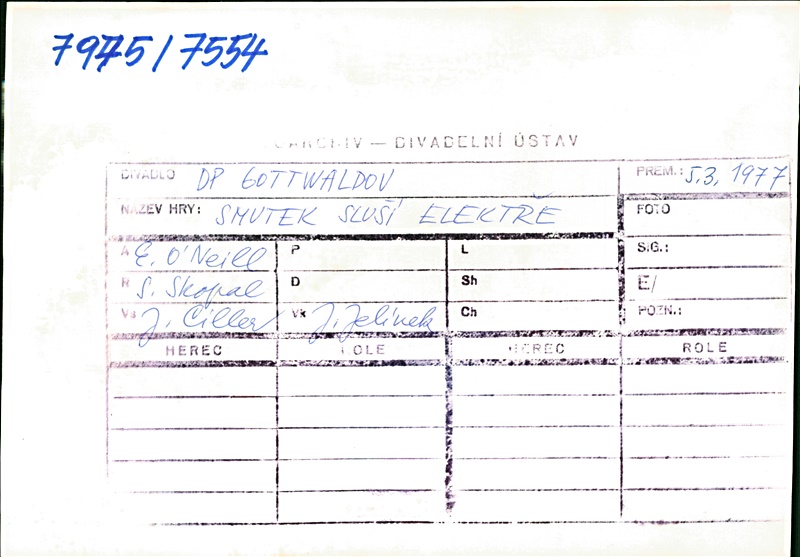 7975/7554
ARCHIV — DIVADELNÍ ÚSTAV
DIVADLO DP GOTTWALDOV PREM.: 5.3.1977
NÁZEV HRY: SMUTEK SLUŠÍ ELEKTŘE FOTO
A E. O'Neill P L SIG.:
R S. Skopal D Sh E/
Vs J. Ciller Vk J. Jelínek Ch POZN.:
HEREC ROLE HEREC ROLE